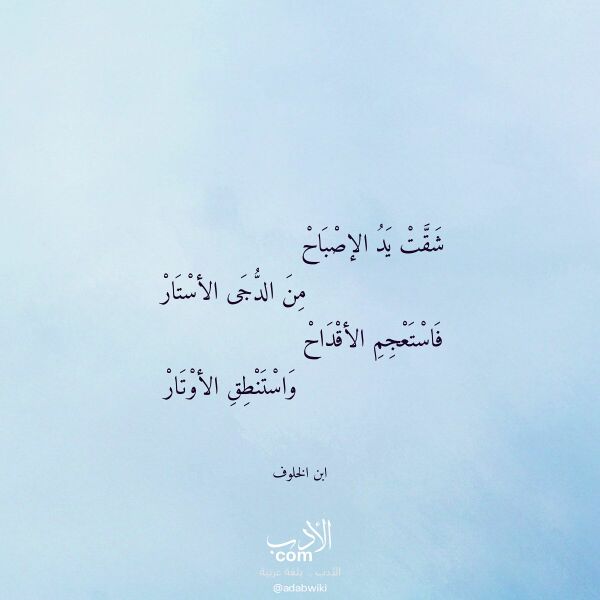 شَقَّتْ يَدُ الإصْبَاحْ
مِنَ الدُّجَى الأسْتَارْ
فَاسْتَعْجِمِ الأقْدَاحْ
وَاسْتَنْطِقِ الأوْتَارْ
ابن الخلوف
الأدب
com
الأدب .. بلغة عربية
@adabwiki